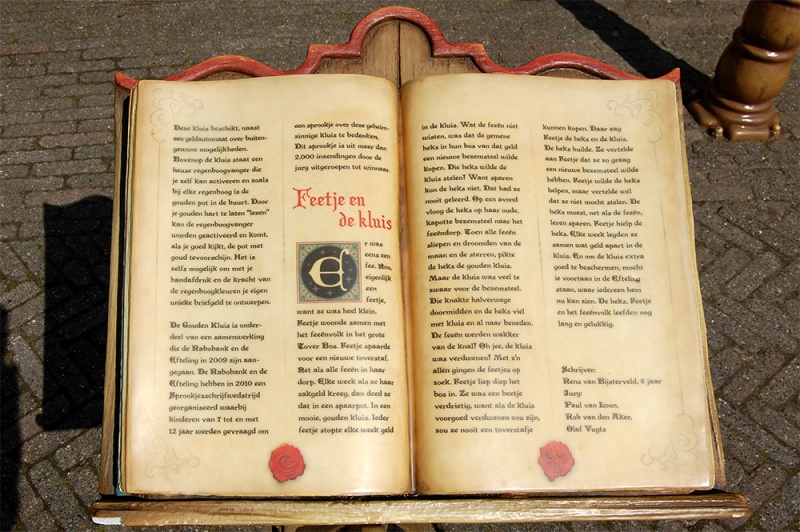 Deze kluis beschikt, naast
een geldautomaat over buiten-
gewone mogelijkheden.
Bovenop de kluis staat een
heuse regenboogvanger die
je zelf kan activeren en zoals
bij elke regenboog is de
gouden pot in de buurt. Door
je gouden hart te laten "lezen"
kan de regenboogvanger
worden geactiveerd en komt,
als je goed kijkt, de pot met
goud tevoorschijn. Het is
zelfs mogelijk om met je
handafdruk en de kracht van
de regenboogkleuren je eigen
unieke briefgeld te ontwerpen.
De Gouden Kluis is onder-
deel van een samenwerking
die de Rabobank en de
Efteling in 2009 zijn aan-
gegaan. De Rabobank en de
Efteling hebben in 2010 een
Sprookjesschrijfwedstrijd
georganiseerd waarbij
kinderen van 7 tot en met
12 jaar werden gevraagd om
een sprookje over deze geheim-
zinnige kluis te bedenken.
Dit sprookje is uit meer dan
2.000 inzendingen door de
jury uitgeroepen tot winnaar.
Feetje en
de kluis
Er was
eens een
fee. Nou,
eigenlijk
een
feetje,
want ze was heel klein.
Feetje woonde samen met
het feeënvolk in het grote
Tover Bos. Feetje spaarde
voor een nieuwe toverstaf.
Net als alle feeën in haar
dorp. Elke week als ze haar
zakgeld kreeg, dan deed ze
dat in een spaarpot. In een
mooie, gouden kluis. Ieder
feetje stopte elke week geld
in de kluis. Wat de feeën niet
wisten, was dat de gemene
heks in hun bos van dat geld
een nieuwe bezemsteel wilde
kopen. Die heks wilde de
kluis stelen! Want sparen
kon de heks niet. Dat had ze
nooit geleerd. Op een avond
vloog de heks op haar oude,
kapotte bezemsteel naar het
feeëndorp. Toen alle feeën
sliepen en droomden van de
maan en de sterren, pikte
de heks de gouden kluis.
Maar de kluis was veel te
zwaar voor de bezemsteel.
Die knakte halverwege
doormidden en de heks viel
met kluis en al naar beneden.
De feeën werden wakker
van de knal! Oh jee, de kluis
was verdwenen! Met z'n
allen gingen de feetjes op
zoek. Feetje liep diep het
bos in. Ze was een beetje
verdrietig, want als de kluis
voorgoed verdwenen zou zijn,
zou ze nooit een toverstafje
kunnen kopen. Daar zag
Feetje de heks en de kluis.
De heks huilde. Ze vertelde
aan Feetje dat ze zo graag
een nieuwe bezemsteel wilde
hebben. Feetje wilde de heks
helpen, maar vertelde wel
dat ze niet mocht stelen. De
heks moest, net als de feeën,
leren sparen. Feetje hielp de
heks. Elke week legden ze
samen wat geld apart in de
kluis. En om de kluis extra
goed te beschermen, mocht
ie voortaan in de Efteling
staan, waar iedereen hem
nu kan zien. De heks, Feetje
en het feeënvolk leefden nog
lang en gelukkig.
Schrijver:
Rena van Bijsterveld, 8 jaar
Jury:
Paul van Loon,
Rob van den Aker,
Olaf Vugts